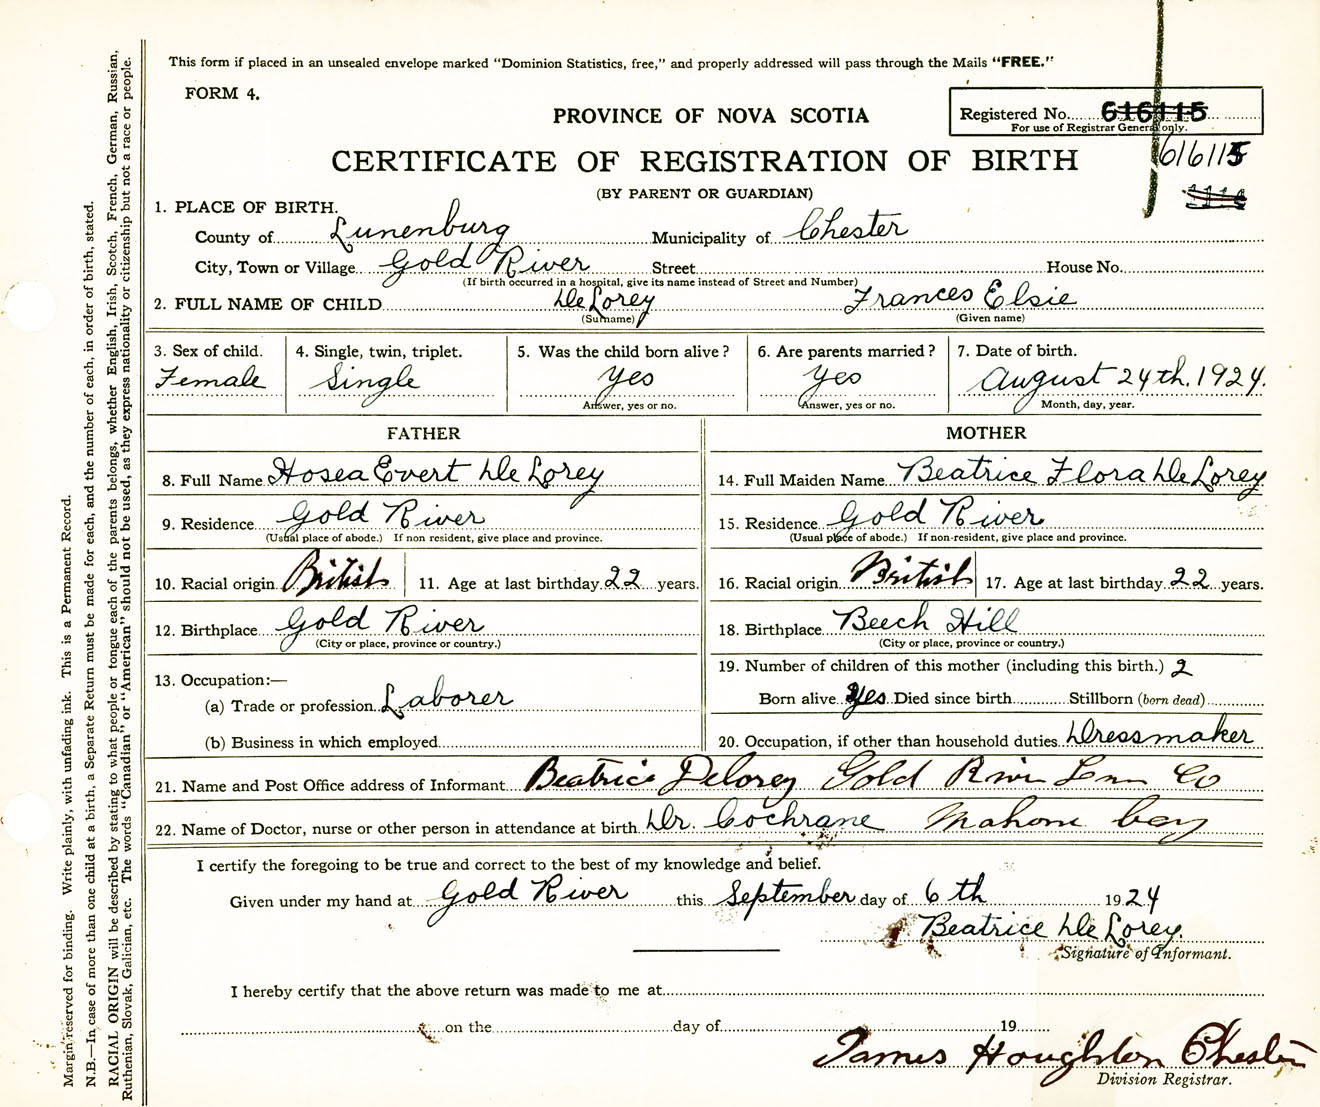 This form if placed in an unsealed envelope marked "Dominion Statistics, free," and properly addressed will pass through the Mails "FREE."
FORM 4.
PROVINCE OF NOVA SCOTIA
Registered No. 616115
For use of Registrar General only.
616115
CERTIFICATE OF REGISTRATION OF BIRTH
(BY PARENT OR GUARDIAN)
1. PLACE OF BIRTH.
County of Lunenburg Municipality of Chester
City, Town or Village Gold River Street House No.
(If birth occurred in a hospital, give its name instead of Street and Number)
2. FULL NAME OF CHILD De Lorey Frances Elsie
(Surname) (Given name)
3. Sex of child. 4. Single, twin, triplet. 5. Was the child born alive? 6. Are parents married? 7. Date of birth.
Female Single Yes Yes August 24th. 1924.
Answer, yes or no. Answer, yes or no. Month, day, year.
FATHER MOTHER
8. Full Name Hosea Evert De Lorey 14. Full Maiden Name Beatrice Flora De Lorey
9. Residence Gold River 15. Residence Gold River
(Usual place of abode.) If non resident, give place and province. (Usual place of abode.) If non-resident, give place and province.
10. Racial origin British 11. Age at last birthday 22 years. 16. Racial origin British 17. Age at last birthday 22 years.
12. Birthplace Gold River 18. Birthplace Beech Hill
(City or place, province or country.) (City or place, province or country.)
13. Occupation:— 19. Number of children of this mother (including this birth.) 2
(a) Trade or profession Laborer Born alive Yes Died since birth Stillborn (born dead)
(b) Business in which employed 20. Occupation, if other than household duties Dressmaker
21. Name and Post Office address of Informant Beatrice Delorey Gold River Lun Co
22. Name of Doctor, nurse or other person in attendance at birth Dr. Cochrane Mahone bay
I certify the foregoing to be true and correct to the best of my knowledge and belief.
Given under my hand at Gold River this September day of 6th 1924
Beatrice De Lorey.
Signature of Informant.
I hereby certify that the above return was made to me at
on the day of 19
James Houghton Chester
Division Registrar.
Margin reserved for binding. Write plainly, with unfading ink. This is a Permanent Record.
N.B.—In case of more than one child at a birth, a Separate Return must be made for each, and the number of each, in order of birth, stated.
RACIAL ORIGIN will be described by stating to what people or tongue each of the parents belongs, whether English, Irish, Scotch, French, German, Russian,
Ruthenian, Slovak, Galician, etc. The words "Canadian" or "American" should not be used, as they express nationality or citizenship but not a race or people.